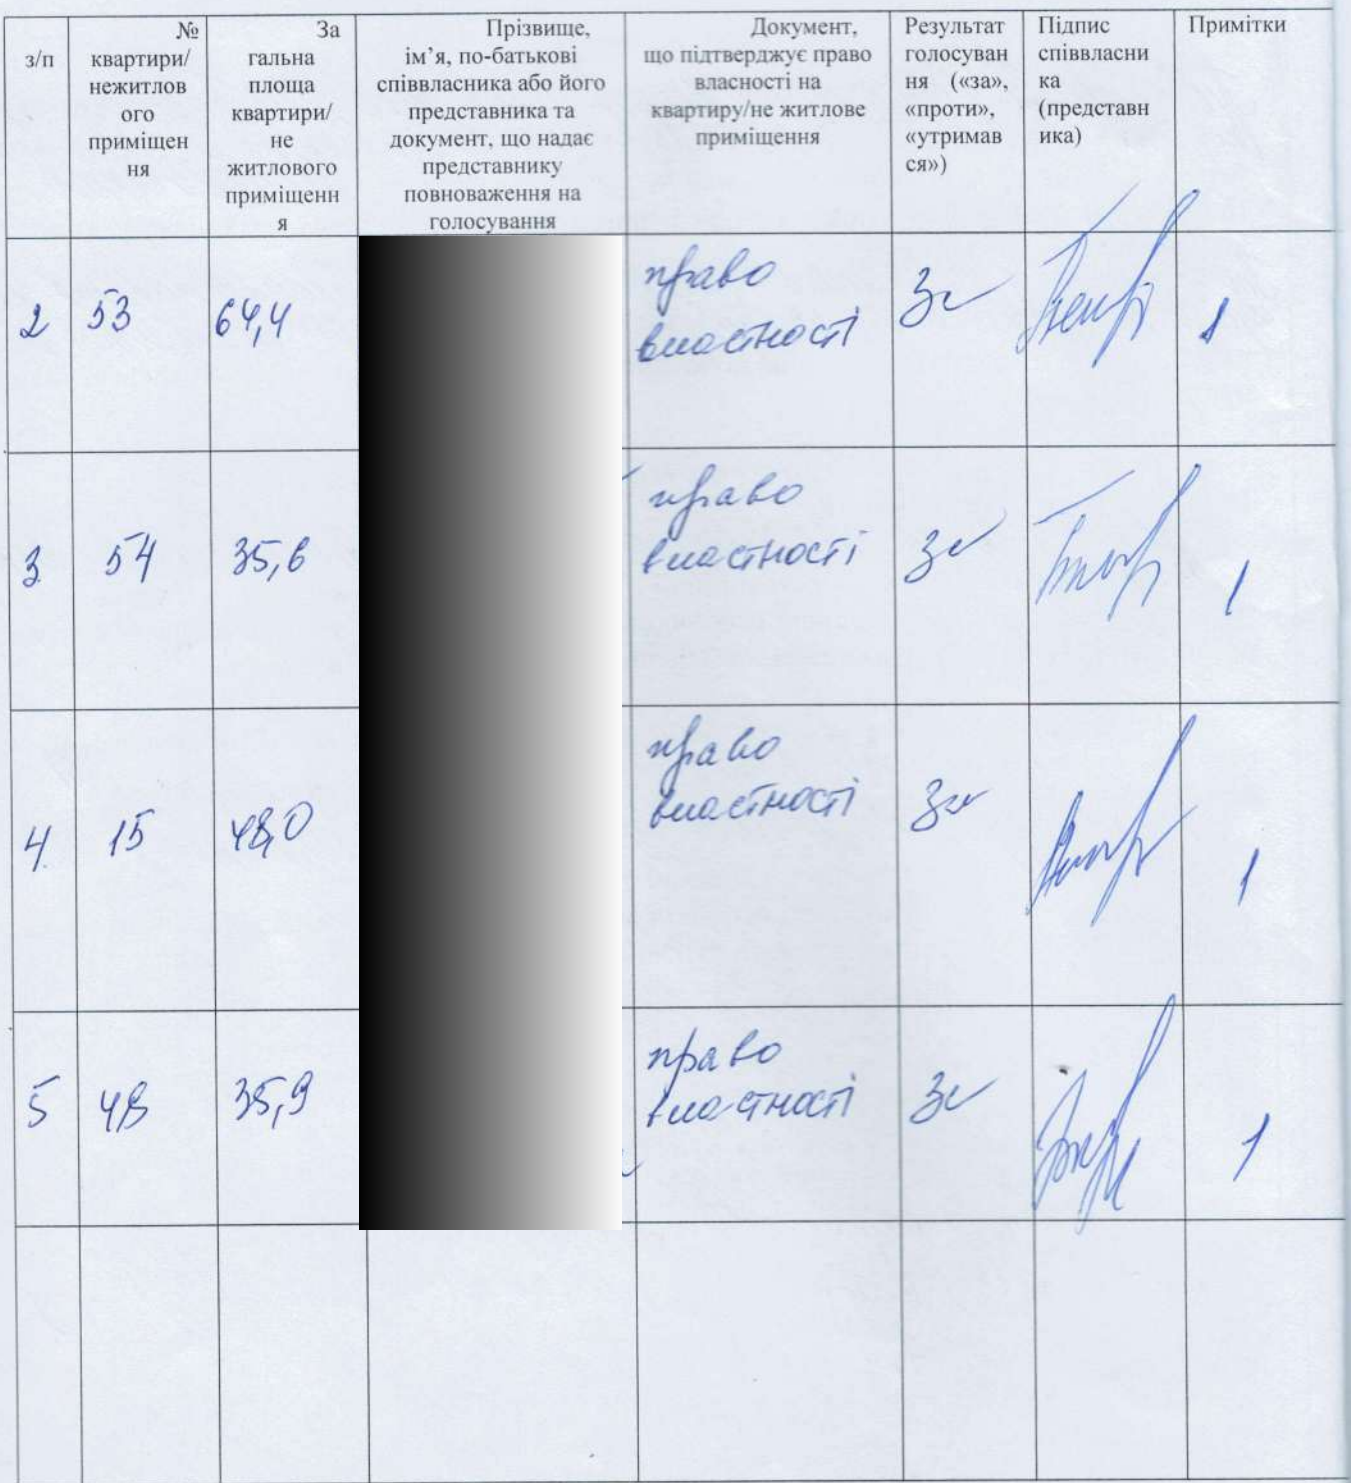 з/п
№
квартири/
нежитлов
ого
приміщен
ня
За
гальна
площа
квартири/
не
житлового
приміщенн
я
Прізвище,
ім’я, по-батькові
співвласника або його
представника та
документ, що надає
представнику
повноваження на
голосування
Документ,
що підтверджує право
власності на
квартиру/не житлове
приміщення
Результат
голосуван
ня («за»,
«проти»,
«утримав
ся»)
Підпис
співвласни
ка
(представн
ика)
Примітки
2
53
64,4
право
власності
За
1
3
54
35,6
право
власності
За
1
4
15
48,0
право
власності
За
1
5
48
35,9
право
власності
За
1